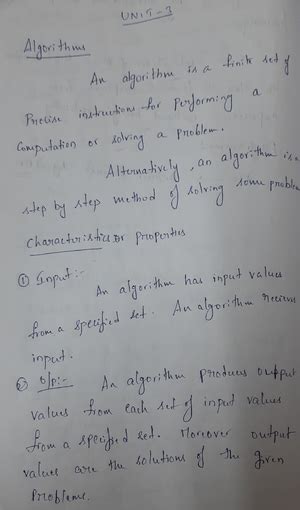 UNIT-3
Algorithms
An algorithm is a finite set of
Precise instructions for performing a
Computation or solving a problem.
Alternatively, an algorithm is a
step by step method of solving some problem
Characteristics or properties
① Input:-
An algorithm has input values
from a specified set. An algorithm receives
input.
② O/p:- An algorithm produces output
values from each set of input values
from a specified set. Moreover output
values are the solutions of the given
Problems.